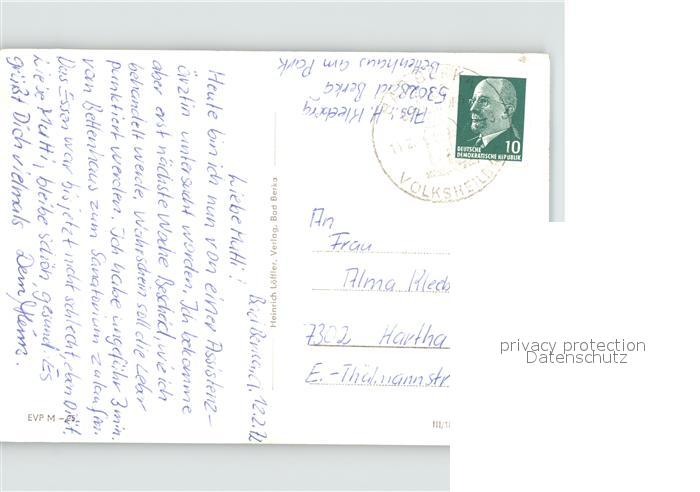 Bad Berka, d. 12.2.72
Liebe Mutti!
Heute bin ich nun von einer Assistenz-
ärztin untersucht worden. Ich bekomme
aber erst nächste Woche Bescheid, wie ich
behandelt werde. Wahrschein soll die Leber
punktiert werden. Ich habe ungefähr 3 min.
vom Bettenhaus zum Sanatorium zu laufen.
Das Essen war bis jetzt nicht schlecht, eben Diät.
Liebe Mutti, bleibe schön gesund. Es
grüßt Dich vielmals Dein
Abs.: H. Kleeberg
53028 Bad Berka
Bettenhaus am Park
DEUTSCHE
DEMOKRATISCHE REPUBLIK
10
VOLKSHEIL
Heinrich Löffler, Verlag, Bad Berka
An
Frau
Alma Kleeb
7302 Hartha
E.-Thälmannstr
EVP M
III/1
privacy protection
Datenschutz